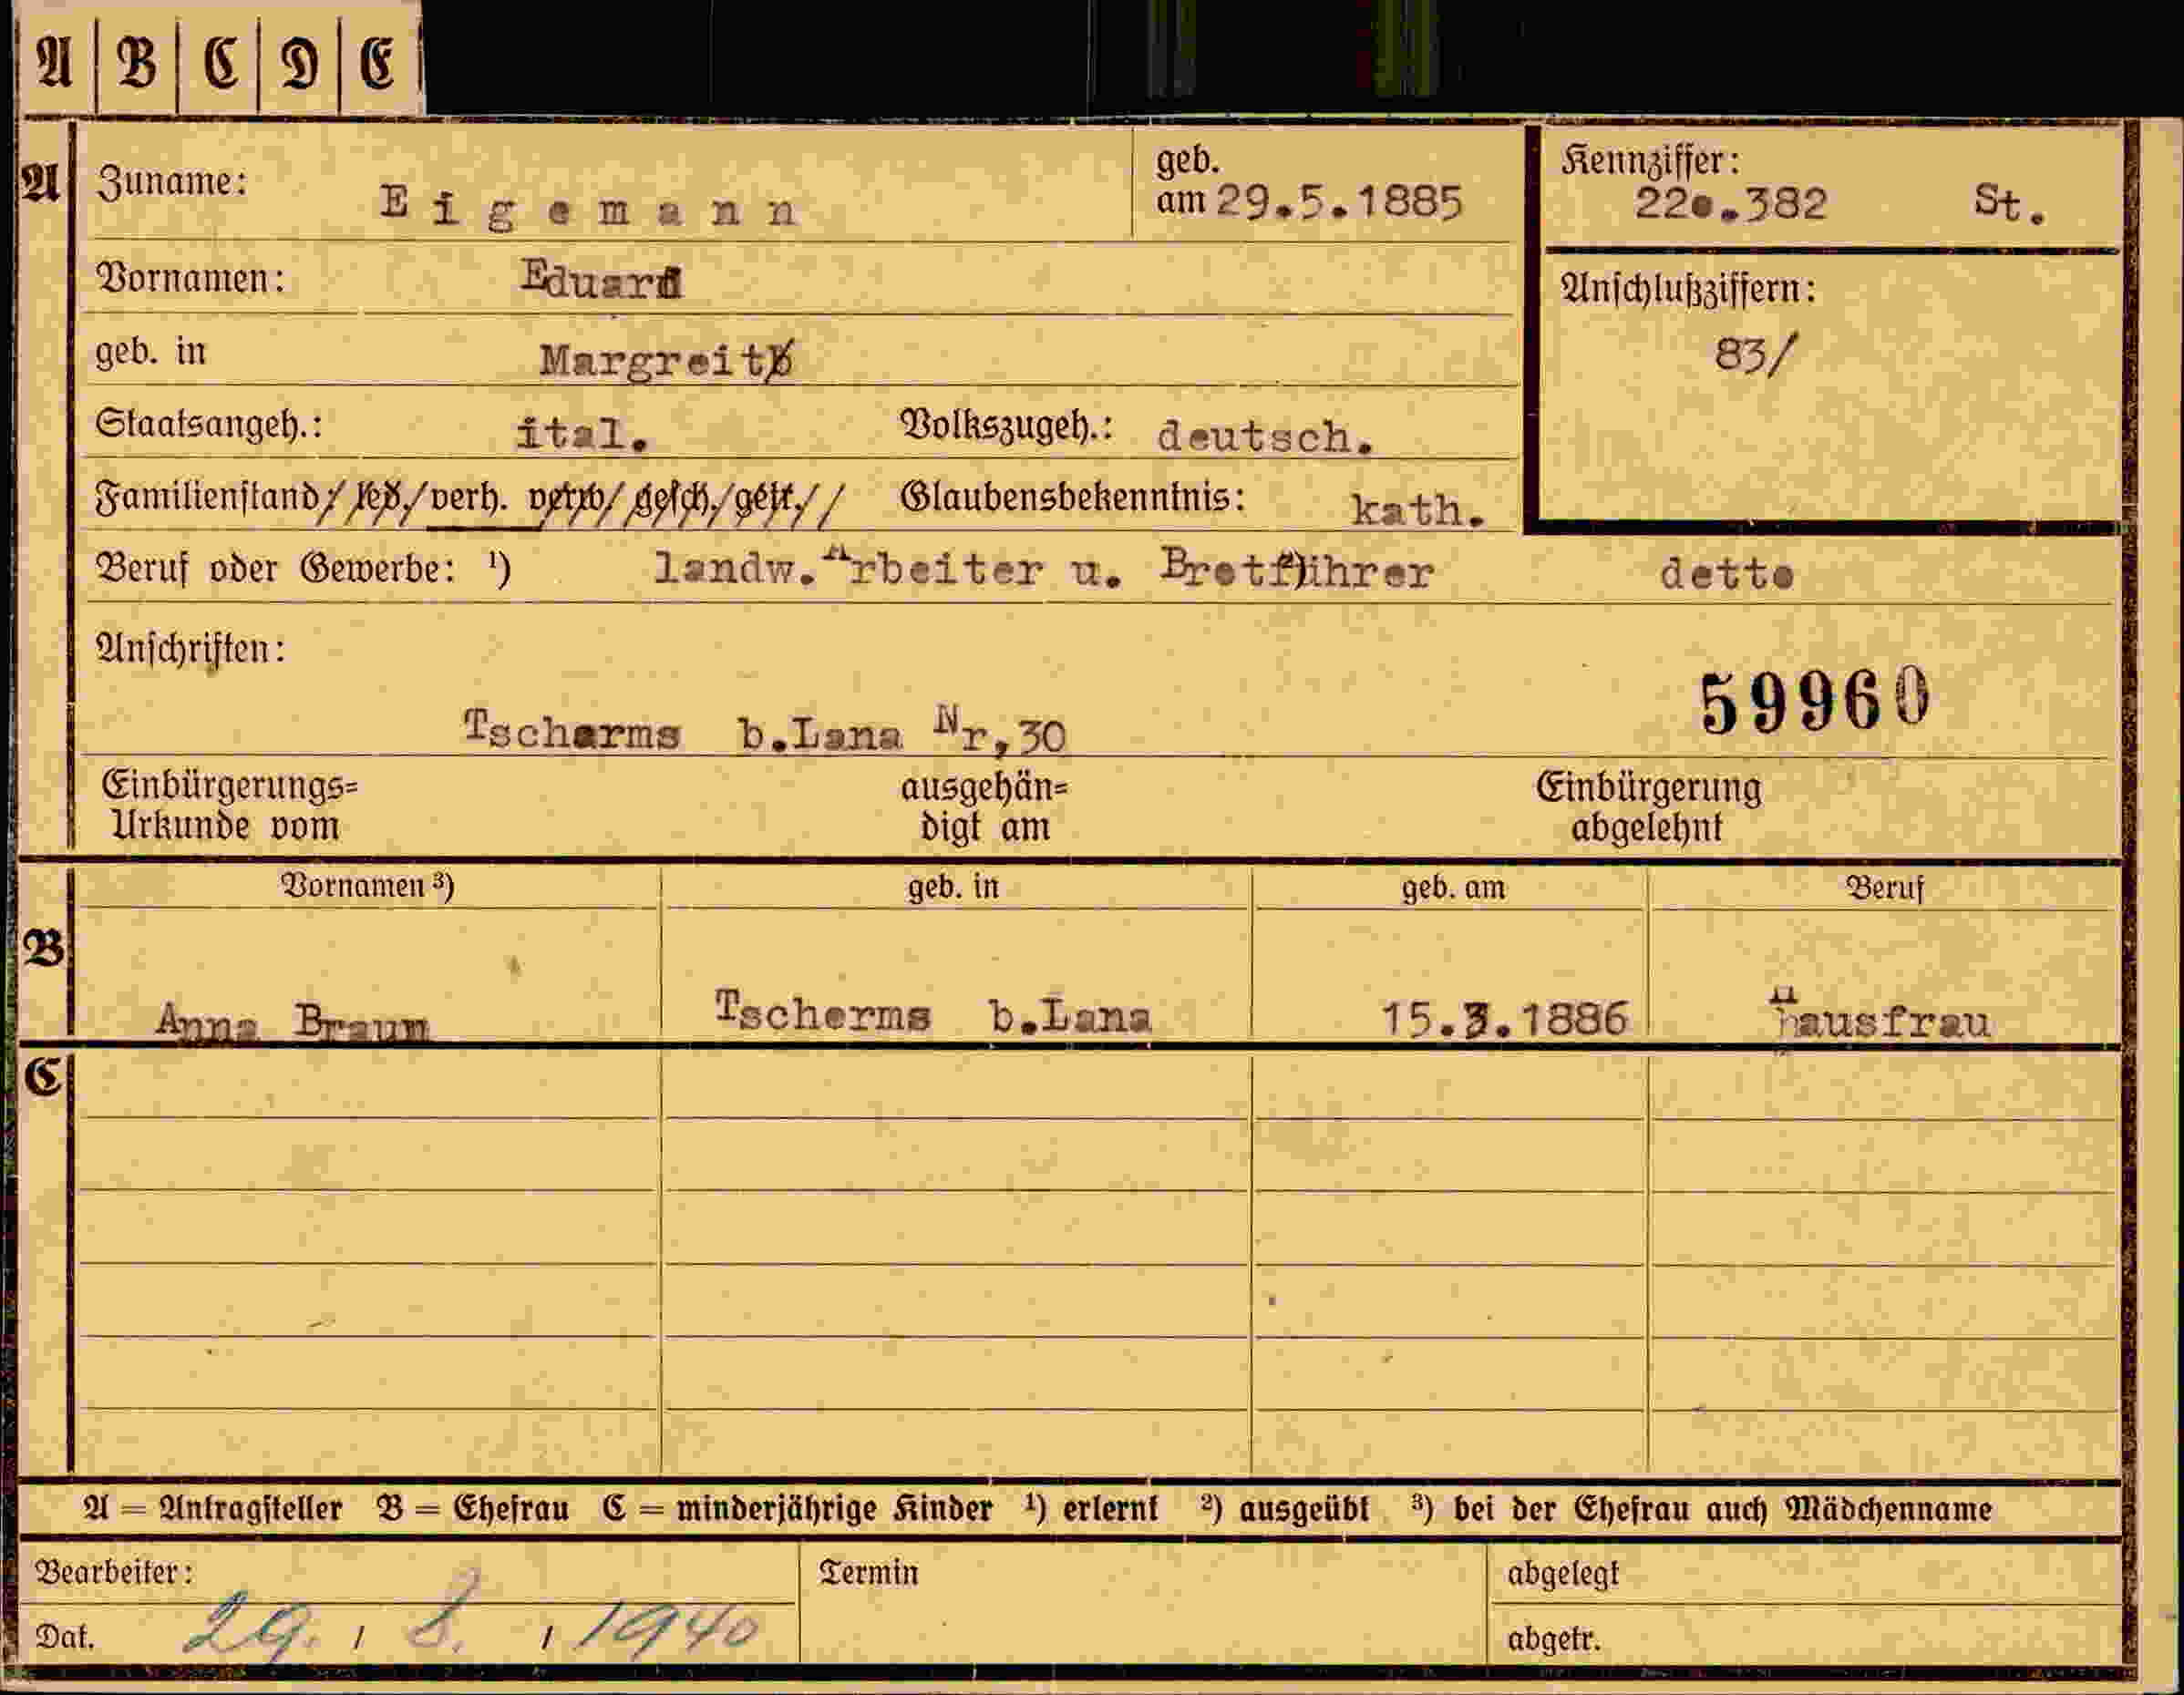 A B C D E
A Zuname: Eigemann geb. am 29.5.1885 Kennziffer: 22o.382 St.
Vornamen: Eduard Anschlußziffern:
geb. in Margreit 83/
Staatsangeh.: ital. Volkszugeh.: deutsch.
Familienstand: led. verh. verw. gesch. getr. Glaubensbekenntnis: kath.
Beruf oder Gewerbe: ¹) landw.Arbeiter u. ²) detto
Anschriften:
59960
Tscharms b.Lana Nr,30
Einbürgerungs= ausgehän= Einbürgerung
Urkunde vom digt am abgelehnt
Vornamen ³) geb. in geb. am Beruf
B Anna Braun Tscherms b.Lana 15.3.1886 Hausfrau
C
A = Antragsteller B = Ehefrau C = minderjährige Kinder ¹) erlernt ²) ausgeübt ³) bei der Ehefrau auch Mädchenname
Bearbeiter: Termin abgelegt
Dat. 29. 8. 1940 abgetr.